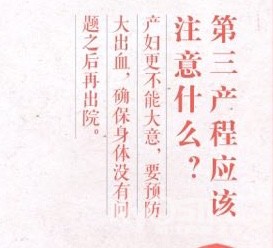 第三产程应该
注意什么？
产妇更不能大意，要预防
大出血，确保身体没有问
题之后再出院。